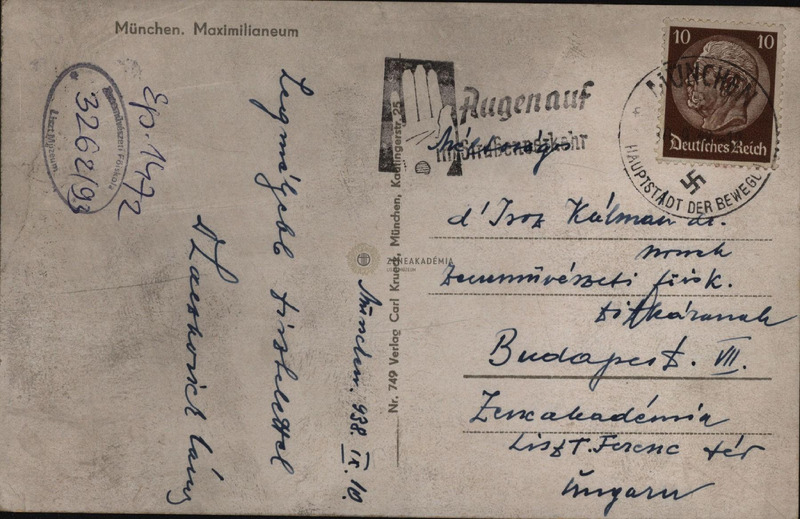 München. Maximilianeum
Ep. 1472
Zeneművészeti Főiskola
3262/93
Liszt Múzeum
Legmélyebb tisztelettel
München. 938 IX. 10.
Nr. 749 Verlag Carl Krueck, München, Kaulingerstr. 25
Augen auf
im Straßenverkehr
10 10
Deutsches Reich
MÜNCHEN
HAUPTSTADT DER BEWEGUNG
d'Isoz Kálmán dr.
úrnak
Zeneművészeti főisk.
titkárának
Budapest. VII.
Zeneakadémia
Liszt Ferenc tér
Ungarn
ZENEAKADÉMIA